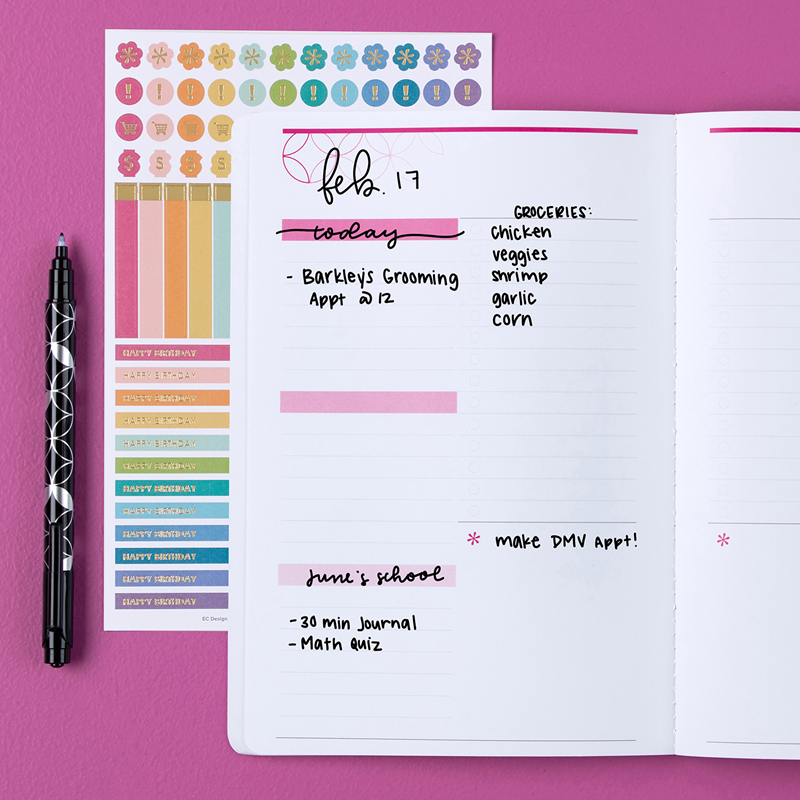 HAPPY BIRTHDAY
HAPPY BIRTHDAY
HAPPY BIRTHDAY
HAPPY BIRTHDAY
HAPPY BIRTHDAY
HAPPY BIRTHDAY
HAPPY BIRTHDAY
HAPPY BIRTHDAY
HAPPY BIRTHDAY
HAPPY BIRTHDAY
HAPPY BIRTHDAY
HAPPY BIRTHDAY
EC Design
feb. 17
today
- Barkley's Grooming
Appt @ 12
june's school
- 30 min Journal
- Math Quiz
GROCERIES:
chicken
veggies
shrimp
garlic
corn
* make DMV Appt!
*